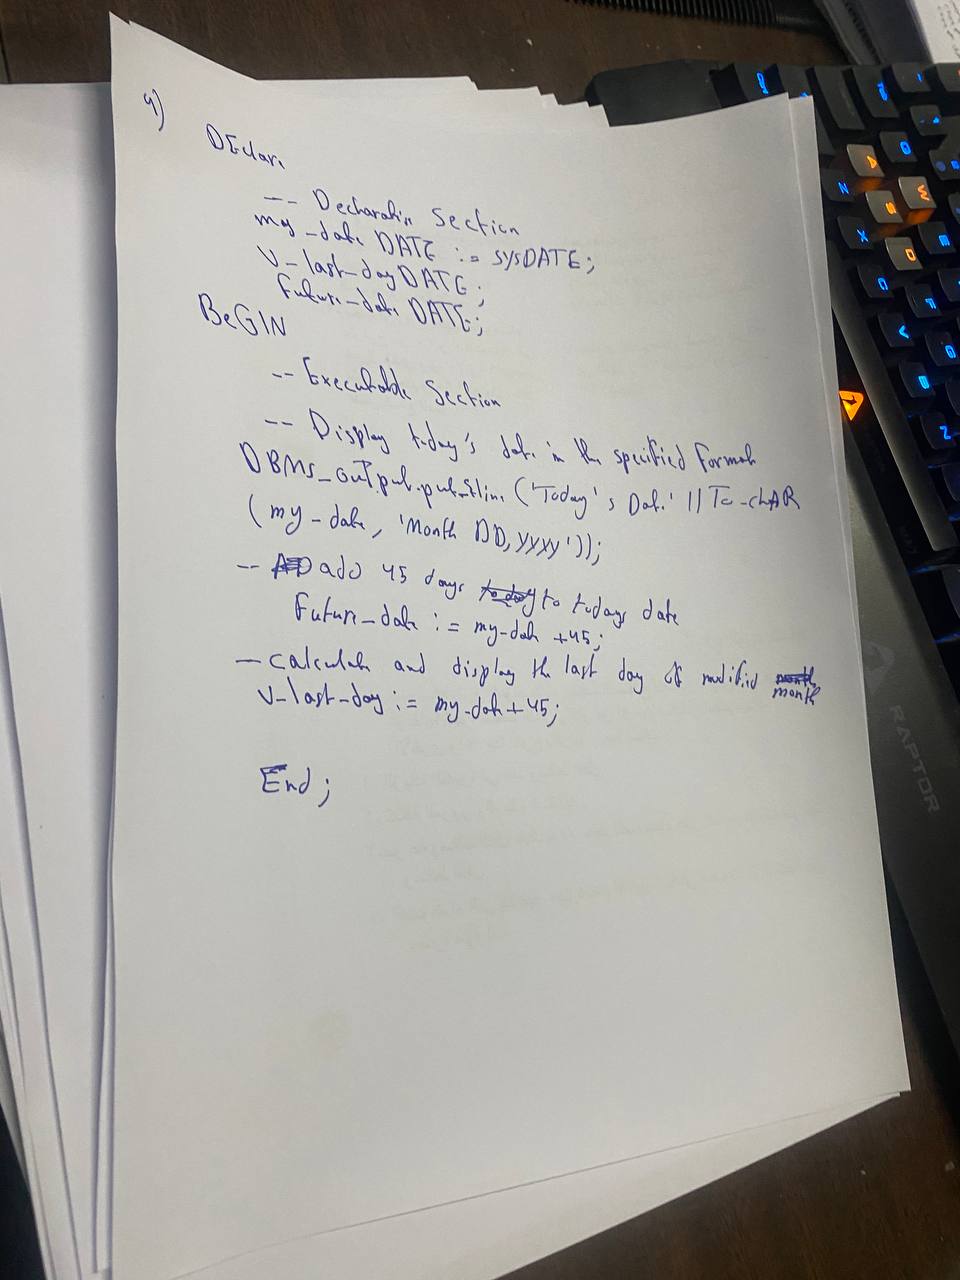 4)
DEclare
-- Declaration Section
my_date DATE := SYSDATE;
v_last_day DATE;
Future_date DATE;
BeGIN
-- Executable Section
-- Display today's date in the specified Format
DBMS_outPut.put_line ('Today's Date' || To_chAR
(my_date, 'Month DD, yyyy'));
-- add 45 days to todays date
Future_date := my_date +45;
- calculate and display the last day of modified
month
v_last_day := my_date + 45;
End;
RAPTOR